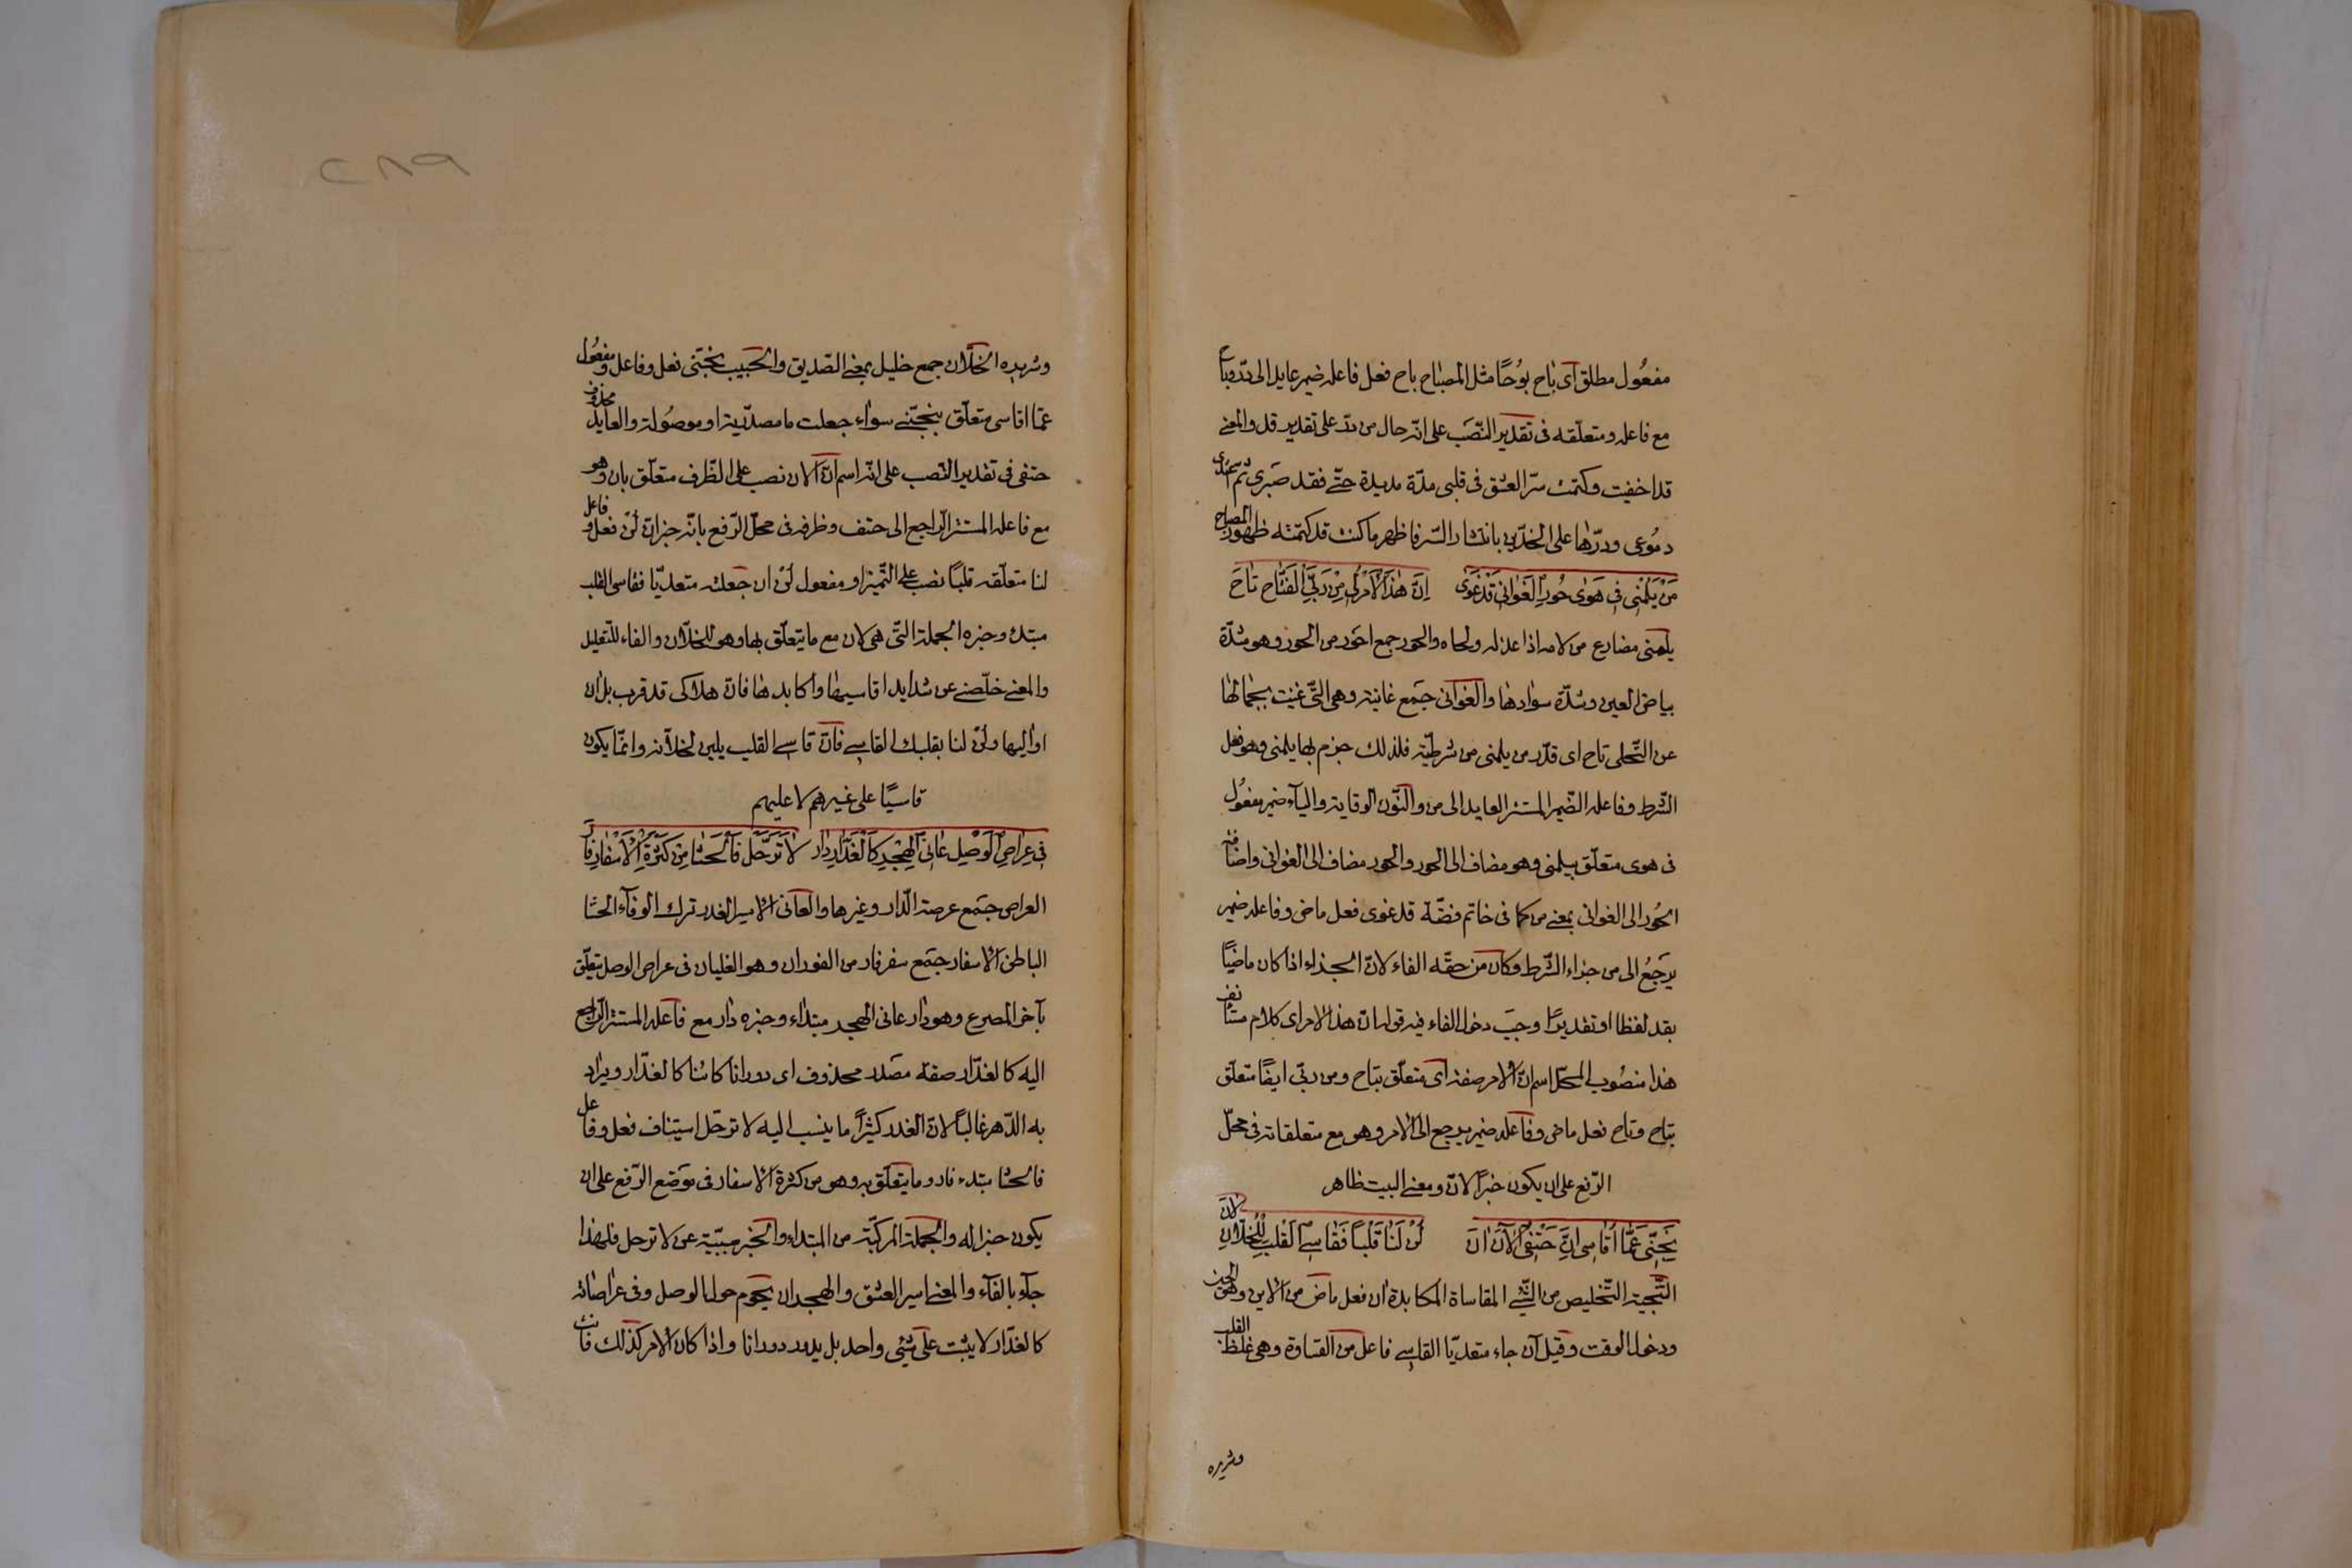 مفعُول مطلق اى باح بوُحًا مثل المصباح باح فعل فاعله ضمير عايد الى درّ وباح
مع فاعله ومتعلّقه فى تقدير النّصَب على انّه حال من درّ على تقدير قد والمعنے
قد اخفيت وكتمت سرّ العشق فى قلبى مدّة مديدة حتّے فقد صَبرى ثم
دمُوعى ودرّها على الخدّين بانتشار السّر فاظهر ما كنت قد كتمته ظهور المصباح
مَنْ يَلُمْنى فى هَوٰى حُورِ الغَوانى قَدْ غَوٰى اِنّ هٰذَا الْأمْرَ لى مِنْ رَبِّىَ الْفَتّاحِ تاحَ
يلمنى مضارع من لامه اذا عذله ولحاه والحور جمع احَور من الحور وهو شدّة
بياض العين وشدّة سوادها والغوانى جَمع غانية وهى الّتى غنيت بجمالها
عن التّحلى تاح اى قدّر من يلمنى من شرطيّة فلذلك جزم بها يلمنى وهو فعل
الشّرط وفاعله الضّمير المستتر العايد الى من والنّون الوقاية واليآء ضمير مفعُول
فى هوى متعلّق بيلمنى وهو مضاف الى الحور والحور مضاف الى الغوانى واضافة
الحُور الى الغوانى بمعنے من كما فى خاتم فضّة قد غوى فعل ماضى وفاعله ضمير
يرجَعُ الى من جزاء الشّرط وكان من حقّه الفاء لانّ الجزاء اذا كان ماضيًا
بقد لفظا او تقديرًا وجبَ دخول الفاء فيه قوله انّ هذا الامر اى كلام مستأنف
هذا منصُوب المحلّ اسم انّ الامر صفته اى متعلّق بتاح ومن ربّى ايضًا متعلّق
بتاح وتاح فعل ماضى وفاعله ضمير يرجع الى الامر وهو مع متعلقاته فى محلّ
الرّفع على ان يكون خبرًا لانّ ومعنے البيت ظاهر
نَجِّنى عَمّا اُقاسى انَّ حَتْفى الآنَ اٰنَ لُنْ لَنا قَلْبًا فَقاسِے القَلبِ لِلْخلّانِ لانَ
التّنجية التّخليص من الشّئ المقاساة المكابدة ان فعل ماض من الاين وهو الحين
ودخول الوقت وقيل آن جاء متعديّا القاسے فاعل من القساوة وهى غلظ القلب
وشريره
وشريره الخلّان جمع خليل بمعنے الصّديق والحبيب نجّنى فعل وفاعل ومفعُول
عمّا اقاسى متعلّق بنجّنے سواء جعلت ما مصدريّة او موصُولة والعايد محذوف
حتفى فى تقدير النّصب على انّه اسم انّ الان نصب على الظّرف متعلّق بان وهو
مع فاعله المستتر الرّاجع الى حتف وظرفه فى محلّ الرّفع بانّه خبر انّ لن فعل وفاعل
لنا متعلّقه قلبًا نصب على التّميز او مفعول لن ان جعلته متعديّا فقاسى القلب
مبتدء وخبره الجملة الّتى هى لان مع ما يتعلّق بها وهو للخلّان والفاء للتّعليل
والمعنے خلّصنے عن شدايد اقاسيها واكابدها فانّ هلاكى قد قرب بل ان
اواليها ولن لنا بقلبك القاسے فانّ قاسے القلب يلين لخلّانه وانّما يكون
قاسيًا على غيرهم لا عليهم
فى عِراصِ الْوَصْلِ عانى الهَجْرِ كَالْغَدّارِ دارَ لا تَرَحَّلْ فَالحَشا مِنْ كَثْرَةِ الْاَسْفارِ فارَ
العراص جَمع عرصة الدّار وغيرها والعانى الاسير الغدر ترك الوفآء الحشا
الباطن الاسفار جَمع سفر فار من الفوران وهو الغليان فى عراص الوصل يتعلّق
بآخر المصرع وهو دار عانى الهجر مبتداء وخبره دار مع فاعله المستتر الرّاجع
اليه كالغدّار صفة مصَدر محذوف اى دورانا كائنا كالغدّار ويراد
به الدّهر غالبًا لانّ الغدر كثيرًا ما ينسب اليه لا ترحّل استيناف فعل وفاعل
فالحشا مبتدء فار وما يتعلّق به وهو من كثرة الاسفار فى موَضع الرّفع على ان
يكون خبرا له والجملة المركبّة من المبتداء والخبر مسبّبة عن لا ترحل فلهذا
جآء بالفآء والمعنے اسير العشق والهجران يحَوم حول الوصل وفى عراصاته
كالغدّار لا يثبت على شئى واحد بل يدور دورانا واذا كان الامر كذلك فانت
٢٨٩